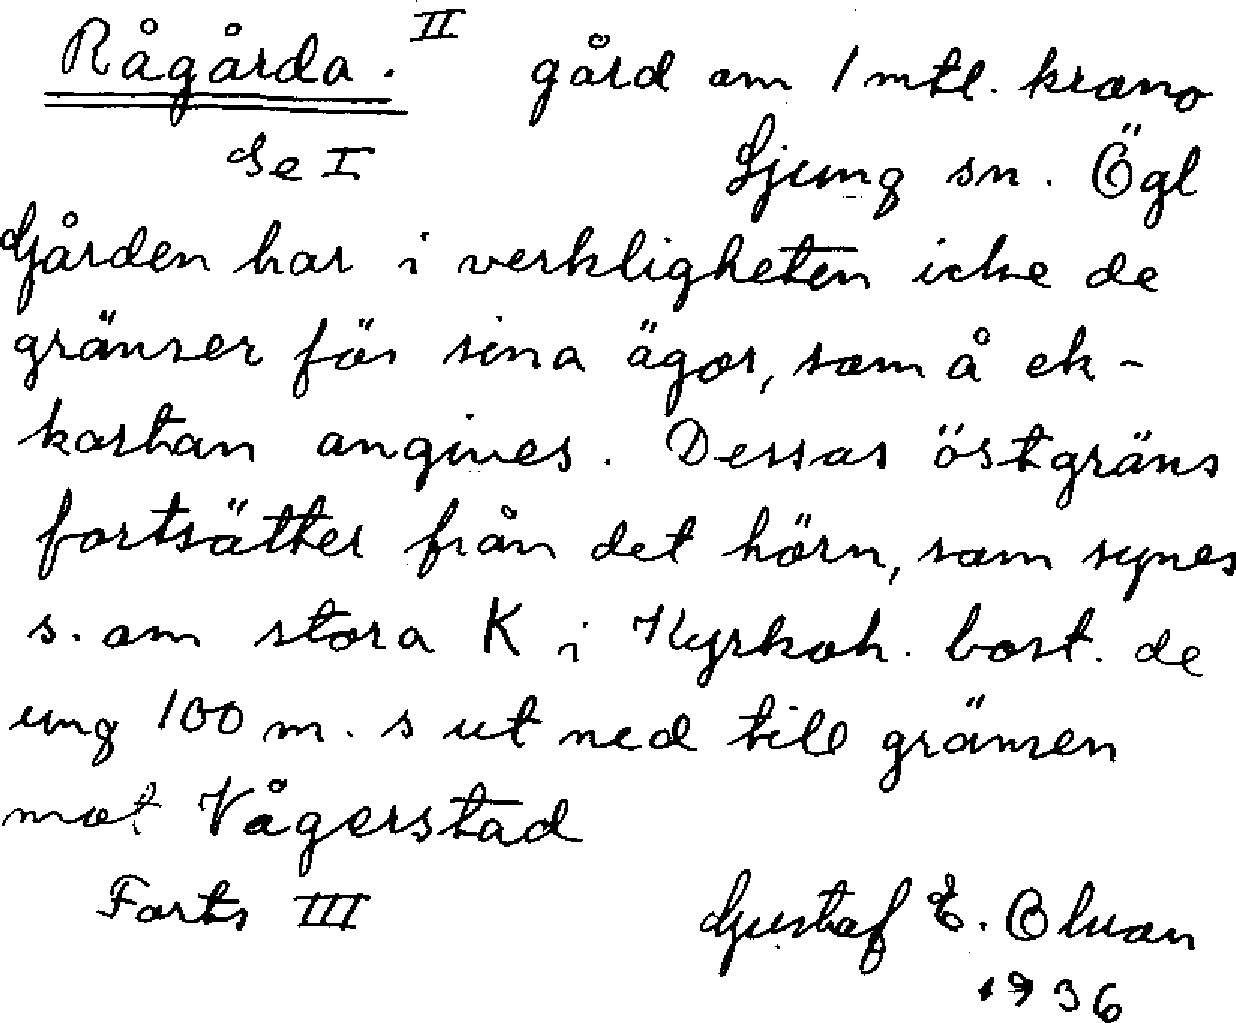 Rågårda. II gård om 1 mtl. krono
Se I Ljung sn. Ögl
Gården har i verkligheten icke de
gränser för sina ägor, som å ek-
kartan angives. Dessas östgräns
fortsätter från det hörn, som synes
s. om stora K i Kyrkoh. bost. de
ung 100 m. s ut ned till gränsen
mot Vågerstad
Forts III Gustaf E. Olson
1936